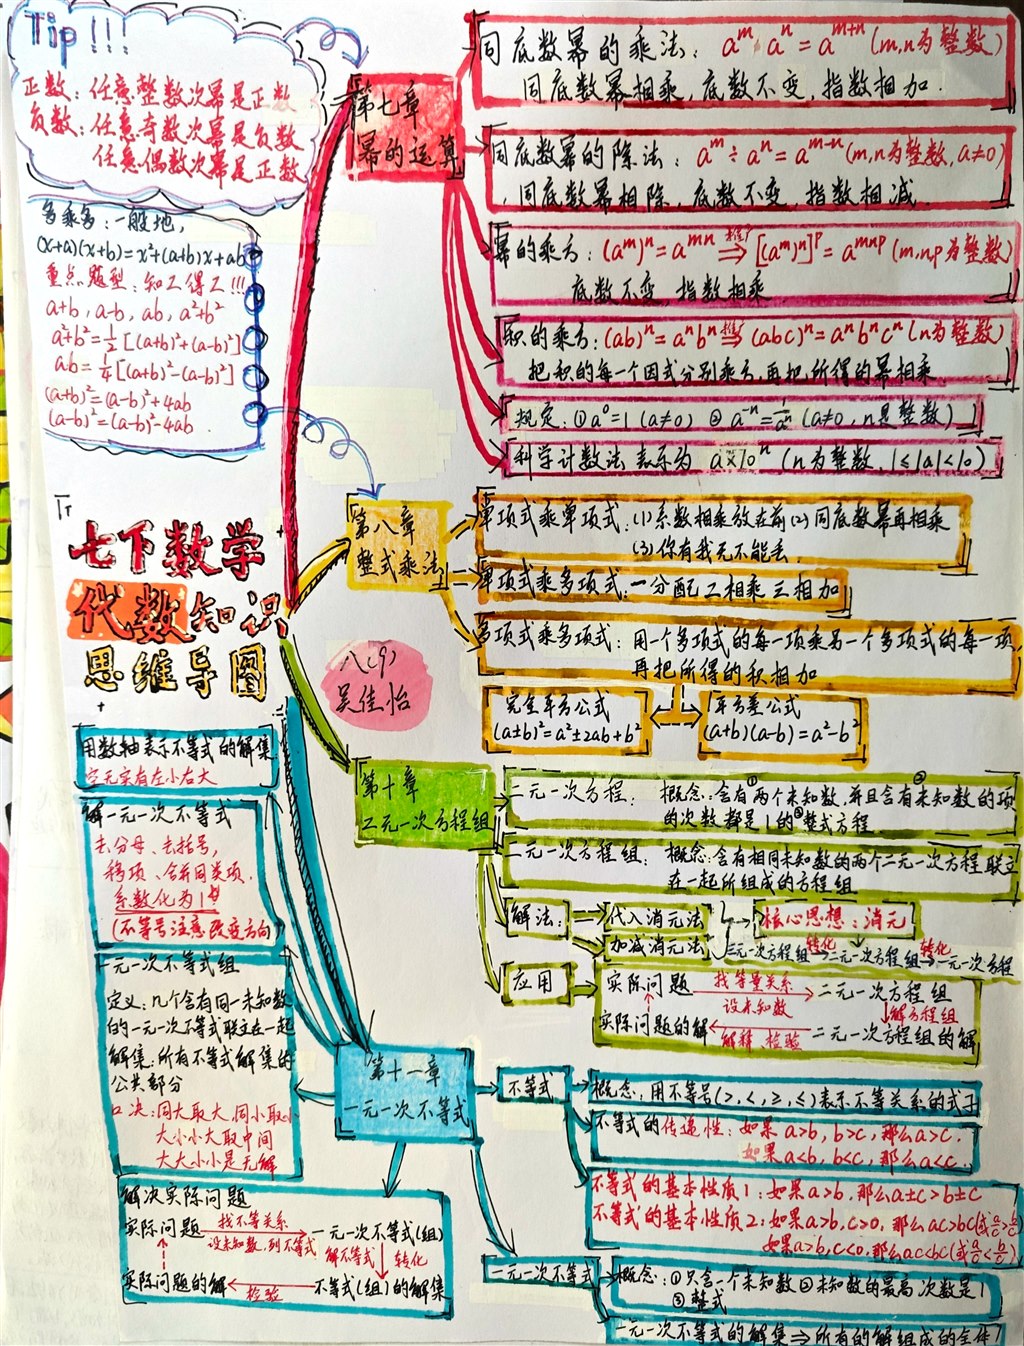 Tip!!!
正数：任意整数次幂是正数
负数：任意奇数次幂是负数
任意偶数次幂是正数
多乘多：一般地，
(x+a)(x+b)=x²+(a+b)x+ab
重点题型：知二得二!!!
a+b，a-b，ab，a²+b²
a²+b²=½[(a+b)²+(a-b)²]
ab=¼[(a+b)²-(a-b)²]
(a+b)²=(a-b)²+4ab
(a-b)²=(a+b)²-4ab
七下数学
代数知识
思维导图
八(9)
吴佳怡
第七章
幂的运算
同底数幂的乘法：aᵐ·aⁿ=aᵐ⁺ⁿ(m,n为整数)
同底数幂相乘，底数不变，指数相加．
同底数幂的除法：aᵐ÷aⁿ=aᵐ⁻ⁿ(m,n为整数，a≠0)
同底数幂相除，底数不变，指数相减．
幂的乘方：(aᵐ)ⁿ=aᵐⁿ 推广⇒ [(aᵐ)ⁿ]ᵖ=aᵐⁿᵖ(m,n,p为整数)
底数不变，指数相乘
积的乘方：(ab)ⁿ=aⁿbⁿ 推广⇒ (abc)ⁿ=aⁿbⁿcⁿ(n为整数)
把积的每一个因式分别乘方，再把所得的幂相乘
规定：①a⁰=1(a≠0) ②a⁻ⁿ=1/aⁿ(a≠0，n是整数)
科学计数法 表示为 a×10ⁿ(n为整数，1≤|a|<10)
第八章
整式乘法
单项式乘单项式：(1)系数相乘放在前(2)同底数幂再相乘
(3)你有我无不能丢
单项式乘多项式：一分配二相乘三相加
多项式乘多项式：用一个多项式的每一项乘另一个多项式的每一项
再把所得的积相加
完全平方公式
(a±b)²=a²±2ab+b²
平方差公式
(a+b)(a-b)=a²-b²
第十章
二元一次方程组
二元一次方程： 概念：含有①两个未知数，并且含有未知数的项
的次数都是1的③整式方程
②
二元一次方程组： 概念：含有相同未知数的两个二元一次方程联立
在一起所组成的方程组
解法：
代入消元法
加减消元法
核心思想：消元
三元一次方程组 转化→ 二元一次方程组 转化→ 一元一次方程
应用
实际问题 找等量关系 设未知数 二元一次方程组
解方程组
实际问题的解 解释、检验 二元一次方程组的解
用数轴表示不等式的解集
空无实有左小右大
解一元一次不等式
去分母、去括号，
移项、合并同类项．
系数化为1
(不等号注意改变方向
一元一次不等式组
定义：几个含有同一未知数
的一元一次不等式联立在一起
解集：所有不等式解集的
公共部分
口决：同大取大，同小取小
大小小大取中间
大大小小是无解
第十一章
一元一次不等式
解决实际问题
实际问题 找不等关系 设未知数，列不等式 一元一次不等式(组)
解不等式 转化
实际问题的解 检验 不等式(组)的解集
不等式
概念：用不等号(>,<,≥,≤)表示不等关系的式子
不等式的传递性：如果a>b，b>c，那么a>c．
如果a<b，b<c，那么a<c．
不等式的基本性质1：如果a>b，那么a±c>b±c
不等式的基本性质2：如果a>b，c>0，那么ac>bc(或a/c>b/c)
如果a>b，c<0，那么ac<bc(或a/c<b/c)
一元一次不等式
概念：①只含一个未知数②未知数的最高次数是1
③整式
一元一次不等式的解集⇒所有的解组成的全体